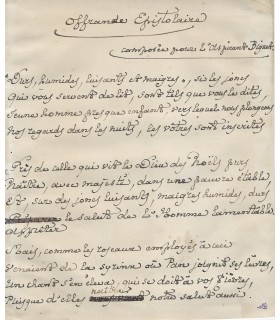 Offrande Epistolaire
composée pour l'Aspirant Piquet
Durs, humides, luisants et maigres, si les joncs
Qui vous servent de lit, sont tels que vous le dites,
Jeune homme presque enfant, vers lequel nous plongeons
Nos regards dans les nuits, les vôtres sont inscrites
Près de celle qui vit le Dieu des Noëls purs
Naître, avec majesté, dans une pauvre étable,
Et, sur des joncs luisants, maigres, humides, durs
le salut de l'Homme lamentable.
Mais, comme les roseaux employés à
venaient de la syrinx où Pan joignit ses lèvres,
Un chant s'en éleva, qui se doit à vos fièvres,
Puisque d'elles naîtra notre salut aussi.